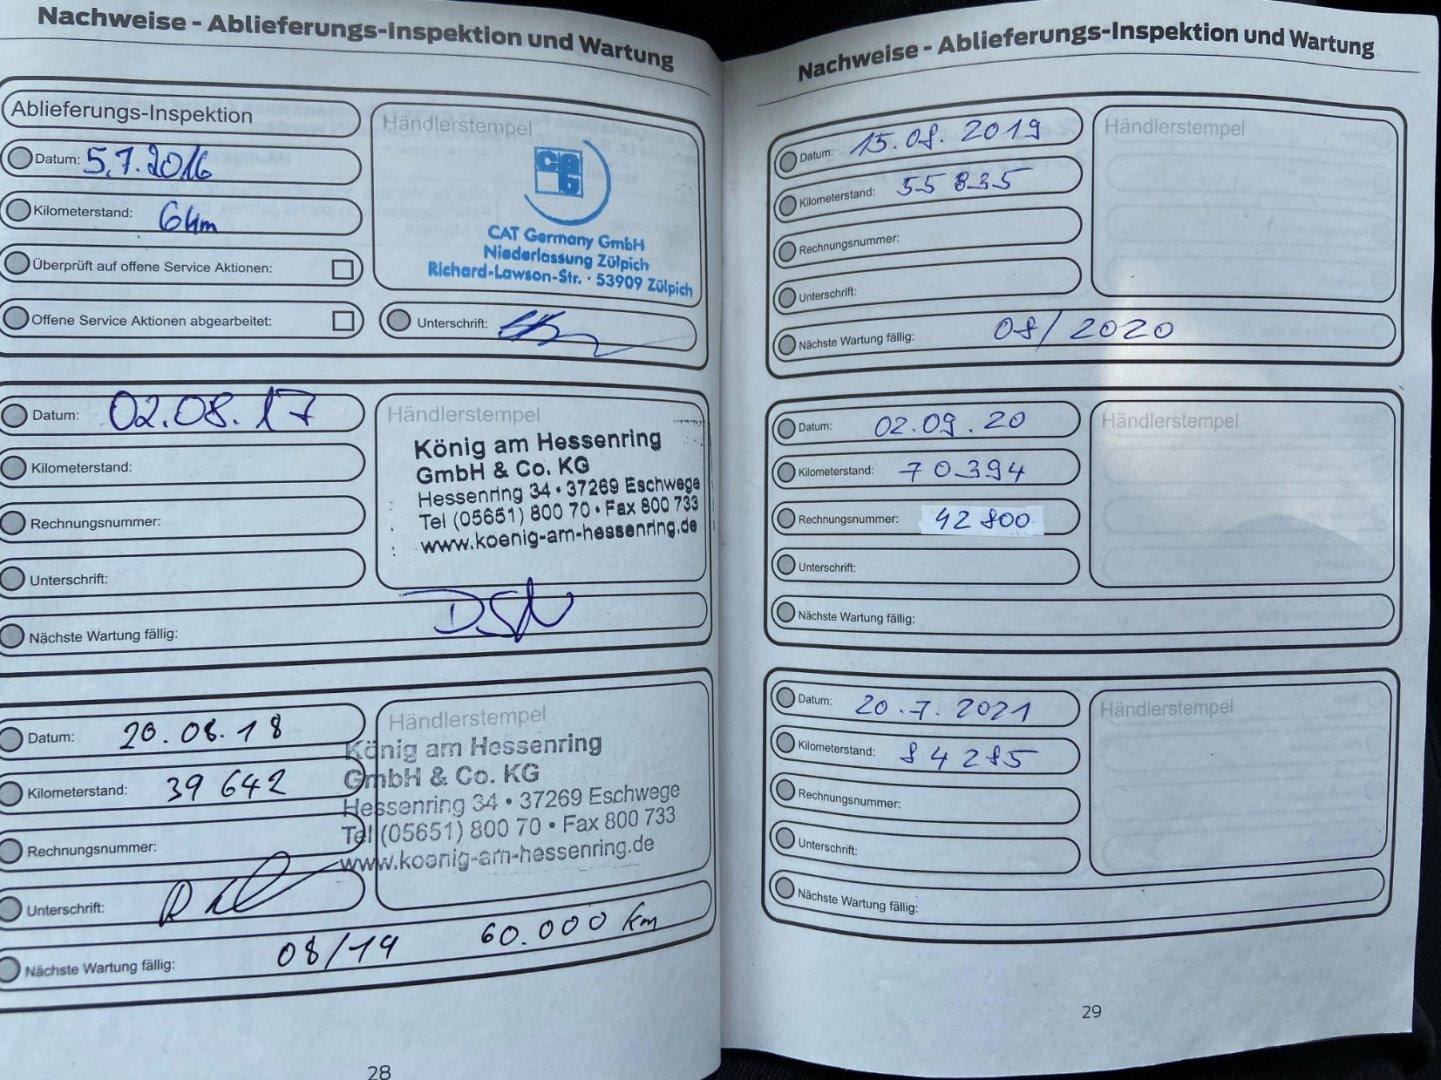 Nachweise - Ablieferungs-Inspektion und Wartung
Ablieferungs-Inspektion
Datum: 5.7.2016
Kilometerstand: 6 km
Überprüft auf offene Service Aktionen:
Offene Service Aktionen abgearbeitet:
Händlerstempel
CAT Germany GmbH
Niederlassung Zülpich
Richard-Lawson-Str. · 53909 Zülpich
Unterschrift:
Datum: 02.08.17
Kilometerstand:
Rechnungsnummer:
Unterschrift:
Nächste Wartung fällig:
Händlerstempel
König am Hessenring
GmbH & Co. KG
Hessenring 34 • 37269 Eschwege
Tel (05651) 800 70 • Fax 800 733
www.koenig-am-hessenring.de
Datum: 20.08.18
Kilometerstand: 39 642
Rechnungsnummer:
Unterschrift:
Nächste Wartung fällig: 08/19 60.000 km
Händlerstempel
König am Hessenring
GmbH & Co. KG
Hessenring 34 • 37269 Eschwege
Tel (05651) 800 70 • Fax 800 733
www.koenig-am-hessenring.de
28
Nachweise - Ablieferungs-Inspektion und Wartung
Datum: 15.08.2019
Kilometerstand: 55 835
Rechnungsnummer:
Unterschrift:
Nächste Wartung fällig: 08/2020
Händlerstempel
Datum: 02.09.20
Kilometerstand: 70394
Rechnungsnummer: 42800
Unterschrift:
Nächste Wartung fällig:
Händlerstempel
Datum: 20.7.2021
Kilometerstand: 84285
Rechnungsnummer:
Unterschrift:
Nächste Wartung fällig:
Händlerstempel
29